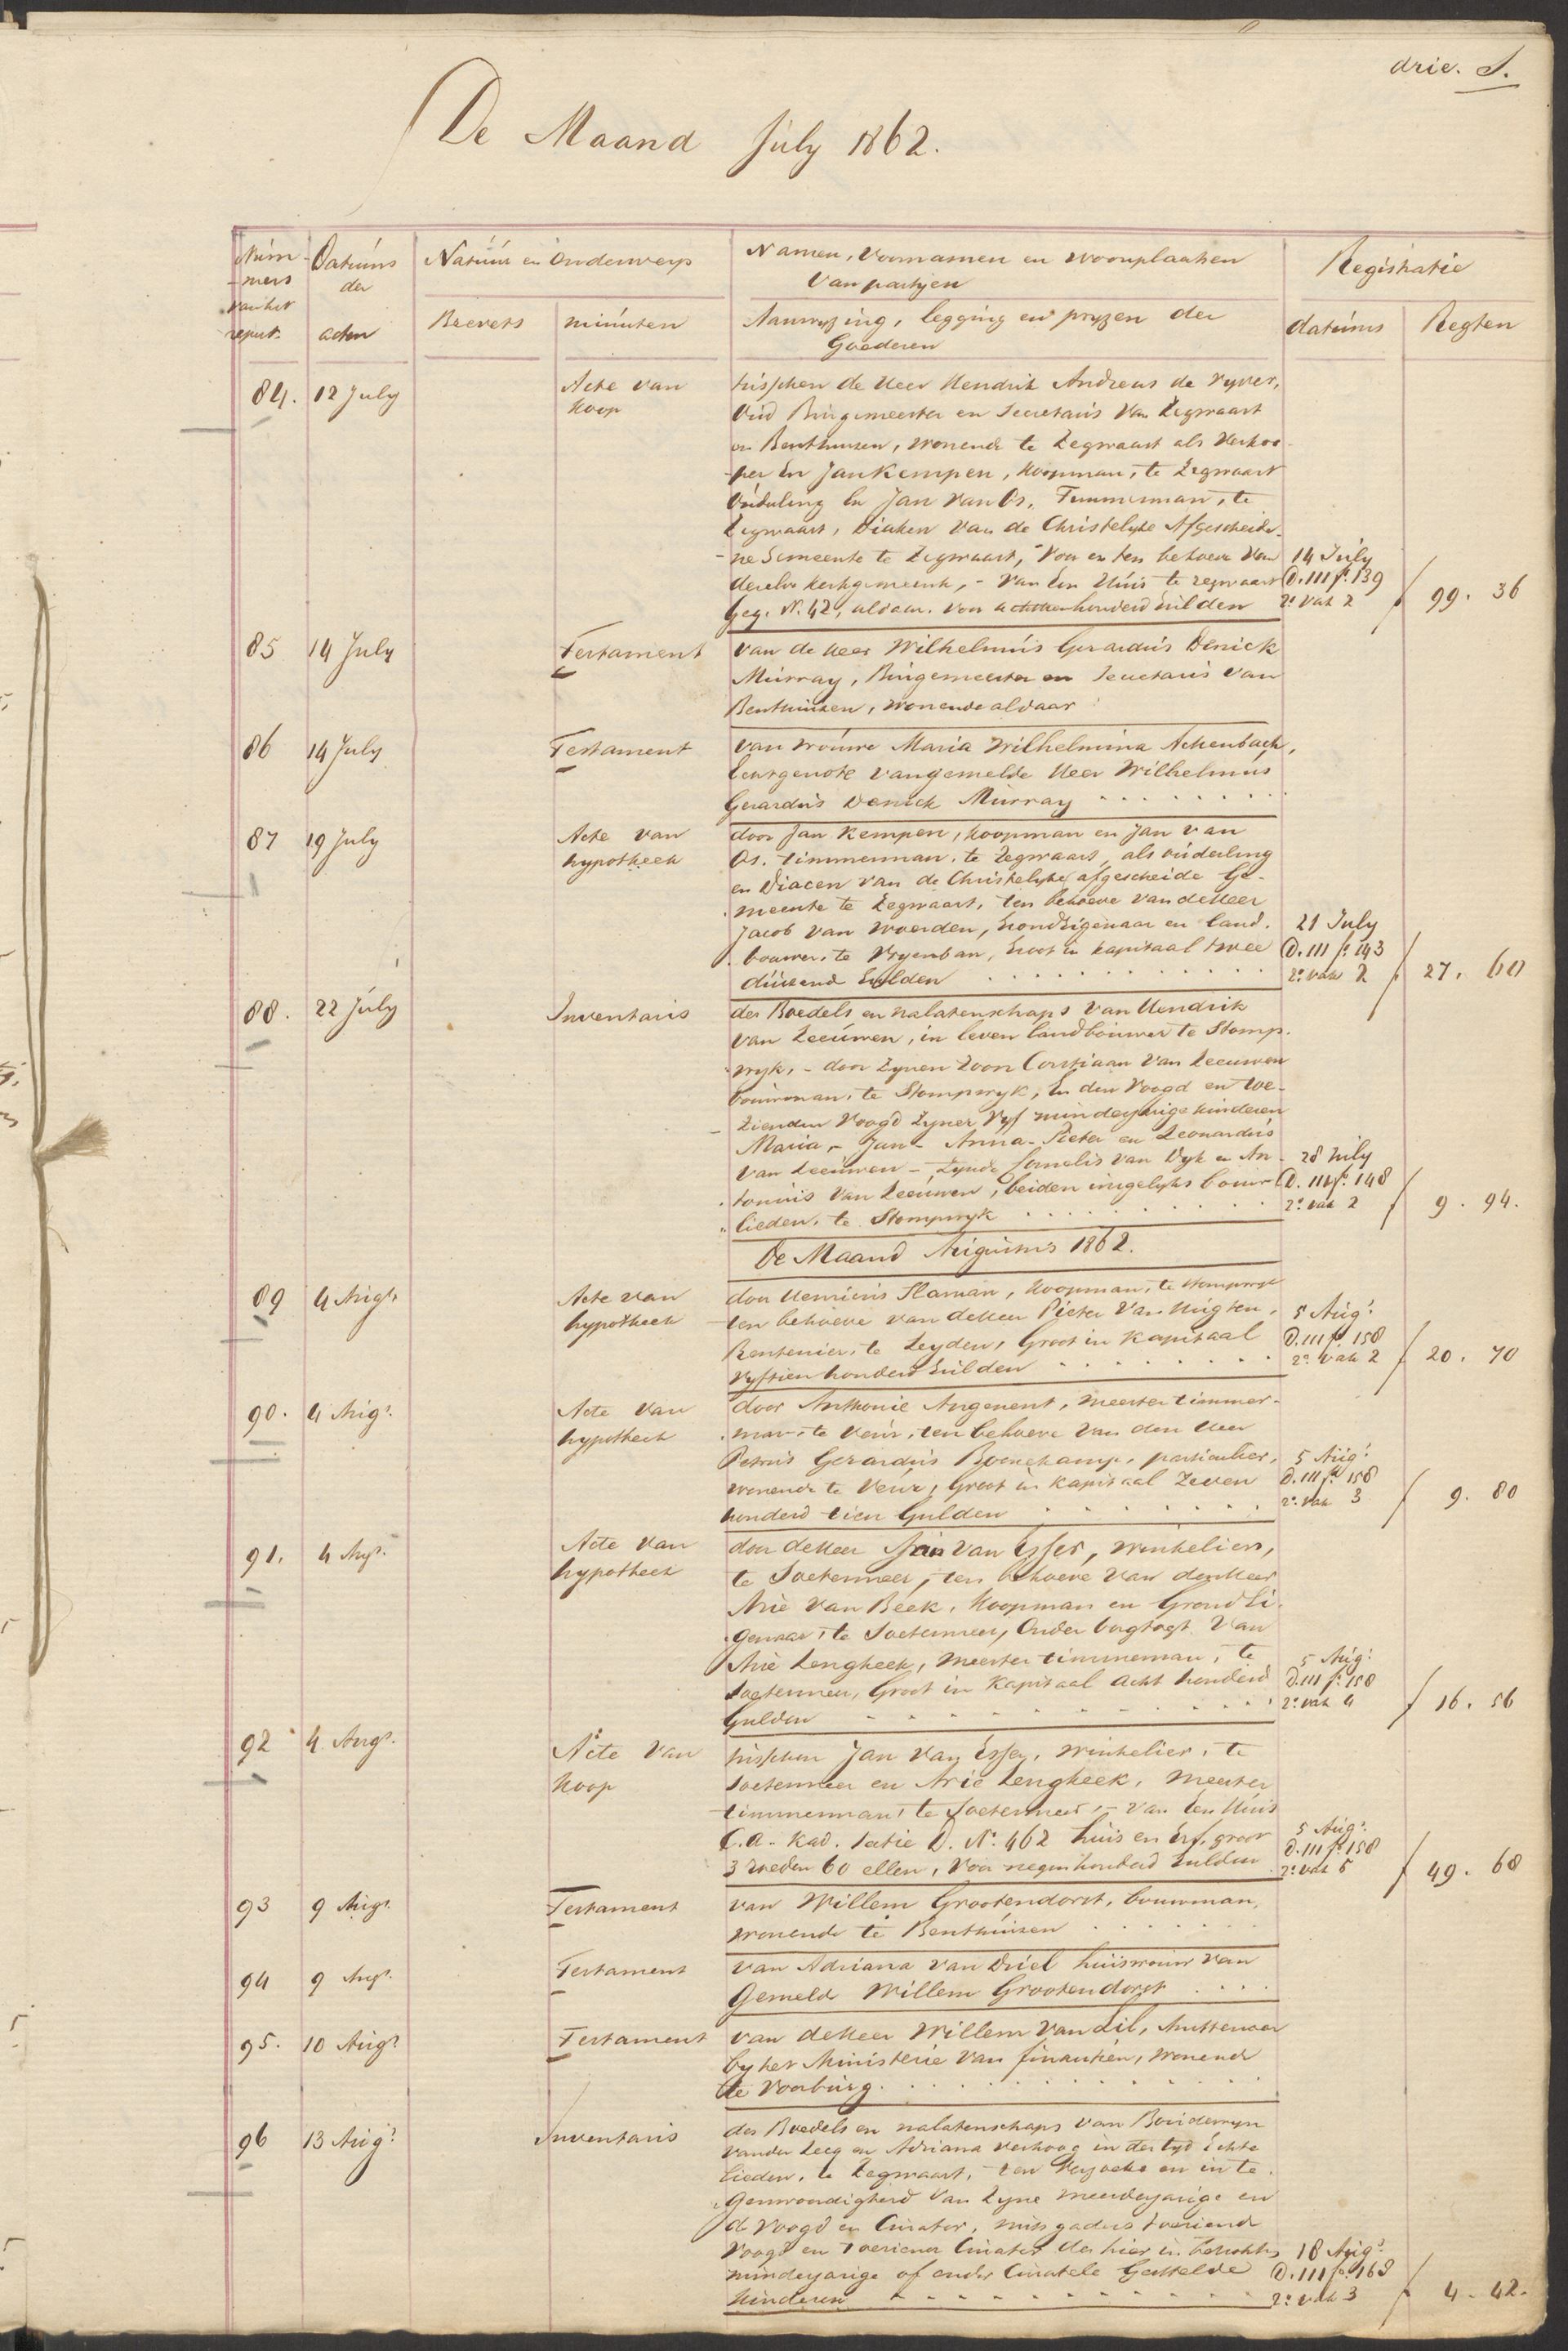 drie. S.
De Maand July 1862.
Num- Datums Natuur en Onderwerp Namen, Voornamen en woonplaatsen Registratie
mers der van partyen
van het
repert. acten Brevets minuten Aanwyzing, legging en pryzen der datums Regten
Goederen
84. 12 July Acte van tusschen de Heer Hendrik Andreas de Vyver,
koop Oud Burgemeester en Secretaris van Zegwaart
en Benthuizen, wonende te Zegwaart als Verkoo-
per En Jan Kempen, koopman, te Zegwaart
Ouderling En Jan van Os, Timmerman, te
Zegwaart, Diaken van de Christelyke Afgescheide-
ne Gemeente te Zegwaart, voor en ten behoeve van 14 July
derelve kerkgemeente, - van Een Huis te Zegwaart D. III f. 139
geq. N. 42, aldaar. voor achttienhonderd Gulden 2e vak 2 f 99. 36
85 14 July Testament van de Heer Wilhelmus Gerardus Denick
Murray, Burgemeester en Secretaris van
Benthuizen, wonende aldaar
86 14 July Testament van vrouwe Maria Wilhelmina Achenbach,
Echtgenote van gemelde Heer Wilhelmus
Gerardus Denick Murray
87 19 July Acte van door Jan Kempen, koopman en Jan van
hypotheek Os. timmerman, te Zegwaart, als ouderling
en Diacen van de Christelyke afgescheide Ge-
meente te Zegwaart, ten behoeve van de Heer
Jacob van Woerden, Grondeigenaar en land- 21 July
bouwer, te Vryenban, Groot in kapitaal twee D. III f. 143
duizend Gulden 2e vak 2 f 27. 60
88. 22 July Inventaris des Boedels en nalatenschaps van Hendrik
van Leeuwen, in leven landbouwer te Stomp-
wyk, - door Zynen Zoon Corstiaan van Leeuwen
bouwman, te Stompwyk, En den Voogd en toe-
zienden Voogd Zyner Vyf minderjarige kinderen
Maria - Jan - Anna - Pieter en Leonardus
van Leeuwen - Zynde Cornelis van Dyk en An- 28 July
tonius van Leeuwen, beiden insgelyks bouw- D. III f. 148
lieden, te Stompwyk 2e vak 2 f 9. 94.
De Maand Augustus 1862.
89 4 Augs. Acte van door Henricus Slaman, koopman, te Stompwyk
hypotheek ten behoeve van de Heer Pieter van Huigten, 5 Aug.
Rentenier, te Leyden, Groot in kapitaal D. III f. 158
vyftien honderd Gulden 2e vak 2 f 20. 70
90. 4 Augs. Acte van door Anthonie Angenent, meester timmer-
hypotheek man, te Veur, ten behoeve van den Heer
Petrus Gerardus Boenekamp, particulier, 5 Aug.
wonende te Veur, Groot in kapitaal Zeven D. III f. 158
honderd tien Gulden 2e vak 3 f 9. 80
91. 4 Augs. Acte van door de Heer Jan van Essej, winkelier,
hypotheek te Soetermeer, ten behoeve van den Heer
Arie van Beek, koopman en Grond Ei-
genaar, te Soetermeer, Onder borgtogt van
Arie Lengkeek, meester timmerman, te 5 Aug.
Soetermeer, Groot in kapitaal acht honderd D. III f. 158
Gulden 2e vak 4 f 16. 56
92 4 Augs. Acte van tusschen Jan van Essej, winkelier, te
koop Soetermeer en Arie Lengkeek, meester
timmerman, te Soetermeer, - van Een Huis
C.a. kad. Sectie D. N. 462 huis en Erf, groot 5 Aug.
3 roeden 60 ellen, voor negenhonderd Gulden D. III f. 158
2e vak 5 f 49. 68
93 9 Augs. Testament van Willem Grootendorst, bouwman,
wonende te Benthuizen
94 9 Augs. Testament van Adriana van Driel huisvrouw van
Gemeld Willem Grootendorst
95. 10 Augs. Testament van de Heer Willem van Lil, Amttenaar
by het Ministerie van finantien, wonende
te Voorburg.
96 13 Augs. Inventaris des Boedels en nalatenschaps van Boudewyn
van der Leeg en Adriana Verhoog in der tyd Echte
lieden, te Zegwaart, - ten verzoeke en in te-
genwoordigheid van Zyne meerderjarige en
de Voogd en Curator, mitsgaders toeziend
Voogd en toeziend Curator der hier in betrokke 18 Aug.
minderjarige of onder Curatele Gestelde D. III f. 168
kinderen 2e vak 3 f 4. 42.